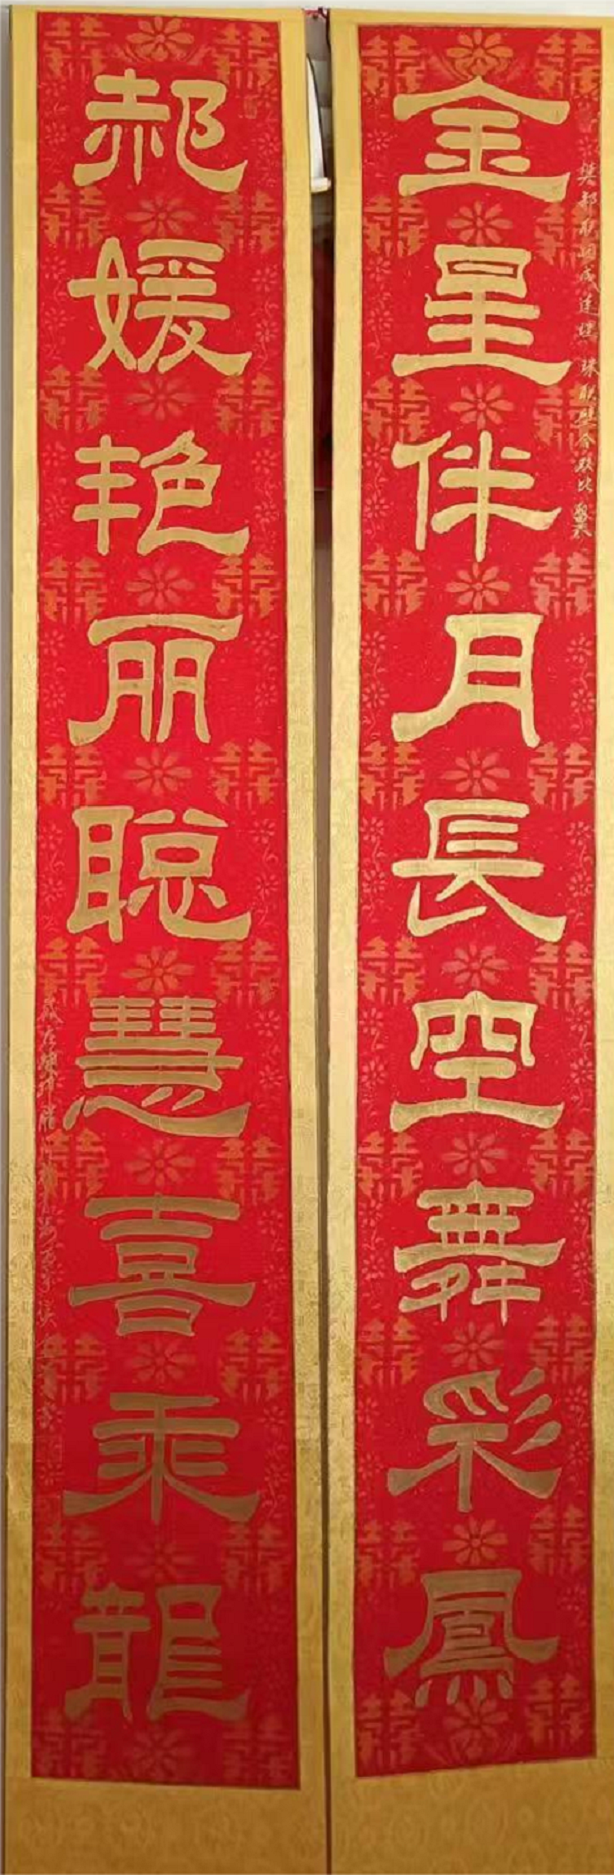 金星伴月長空舞彩鳳
郝媛艳丽聪慧喜乘龍